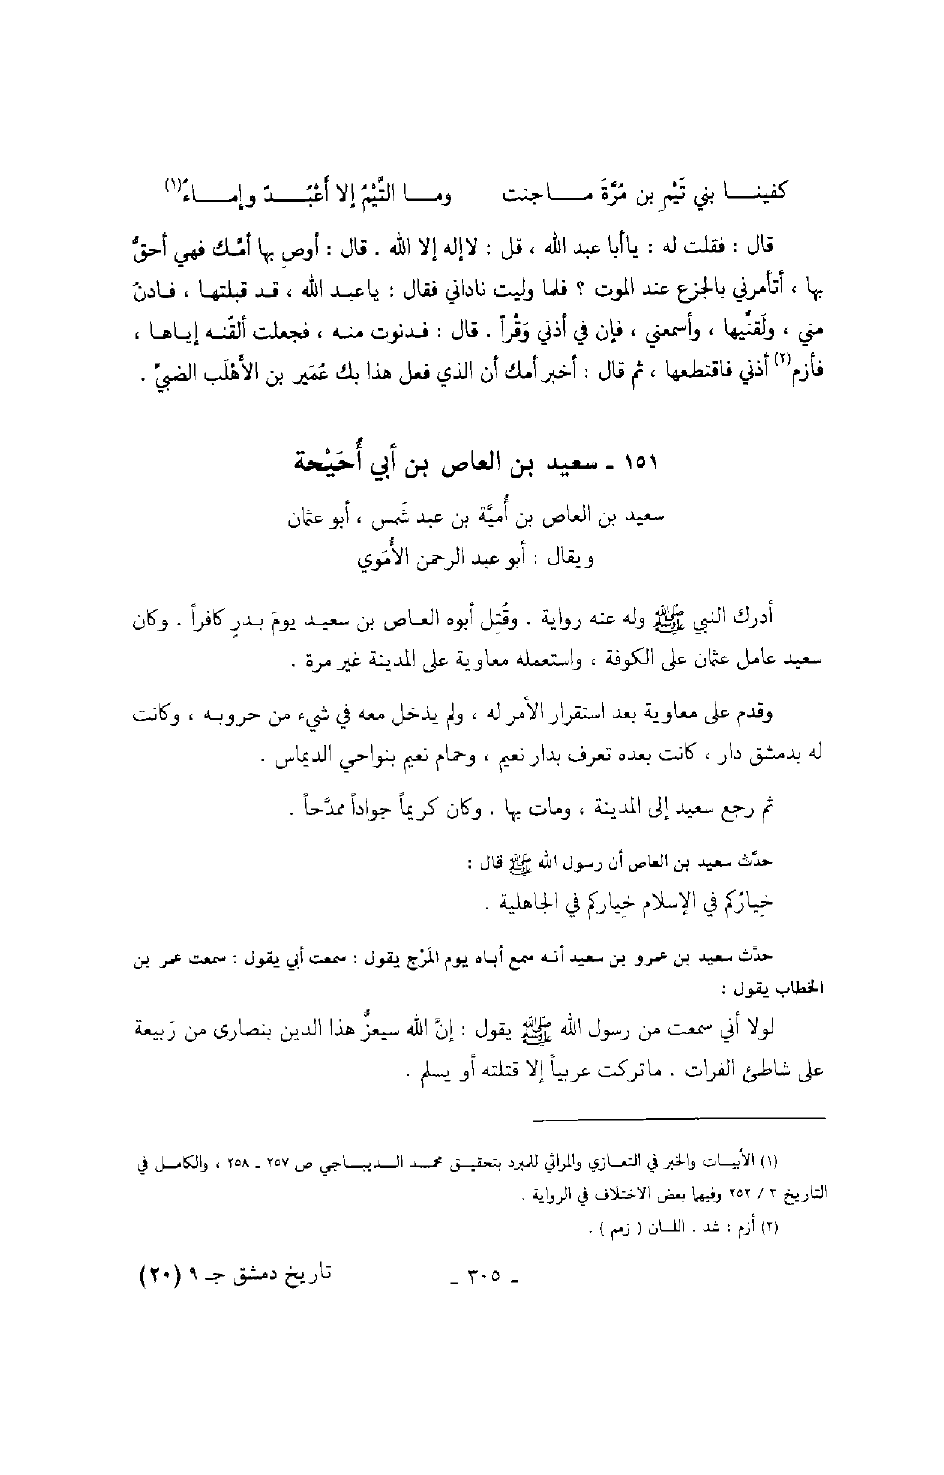 كفينا بني تَيْمِ بن مُرَّةَ ما جنت    وما التَّيْمُ إلا أَعْبُدٌ وإماءُ(١)
قال : فقلت له : ياأبا عبد الله ، قل : لاإله إلا الله . قال : أوصِ بها أمَّك فهي أحقُّ
بها ، أتأمرني بالجزع عند الموت ؟ فلما وليت ناداني فقال : ياعبد الله ، قد قبلتها ، فادنُ
مني ، ولَقنِّيها ، وأسمعني ، فإن في أذني وَقْراً . قال : فدنوت منه ، فجعلت ألقّنه إياها ،
فأزم(٢) أذني فاقتطعها ، ثم قال : أخبر أمك أن الذي فعل هذا بك عُمَير بن الأَهْلَب الضبيّ .
١٥١ ـ سعيد بن العاص بن أبي أُحَيْحة
سعيد بن العاص بن أُميَّة بن عبد شَمس ، أبو عثمان
ويقال : أبو عبد الرحمن الأُمَوي
أدرك النبي ﷺ وله عنه رواية . وقُتِل أبوه العاص بن سعيد يومَ بدرٍ كافراً . وكان
سعيد عامل عثمان على الكوفة ، واستعمله معاوية على المدينة غير مرة .
وقدم على معاوية بعد استقرار الأمر له ، ولم يدخل معه في شيء من حروبه ، وكانت
له بدمشق دار ، كانت بعده تعرف بدار نعيم ، وحمام نعيم بنواحي الديماس .
ثم رجع سعيد إلى المدينة ، ومات بها . وكان كريماً جواداً ممدَّحاً .
حدَّث سعيد بن العاص أن رسول الله ﷺ قال :
خيارُكم في الإسلام خياركم في الجاهلية .
حدَّث سعيد بن عمرو بن سعيد أنه سمع أباه يوم المَرْج يقول : سمعت أبي يقول : سمعت عمر بن
الخطاب يقول :
لولا أني سمعت من رسول الله ﷺ يقول : إنَّ الله سيعزُّ هذا الدين بنصارى من رَبيعة
على شاطئ الفرات . ماتركت عربياً إلا قتلته أو يسلم .
(١) الأبيات والخبر في التعازي والمراثي للمبرد بتحقيق محمد الديباجي ص ٢٥٧ ـ ٢٥٨ ، والكامل في
التاريخ ٣ / ٢٥٢ وفيها بعض الاختلاف في الرواية .
(٢) أزم : شد . اللسان ( زمم ) .
ـ ٣٠٥ ـ    تاريخ دمشق جـ ٩ (٢٠)